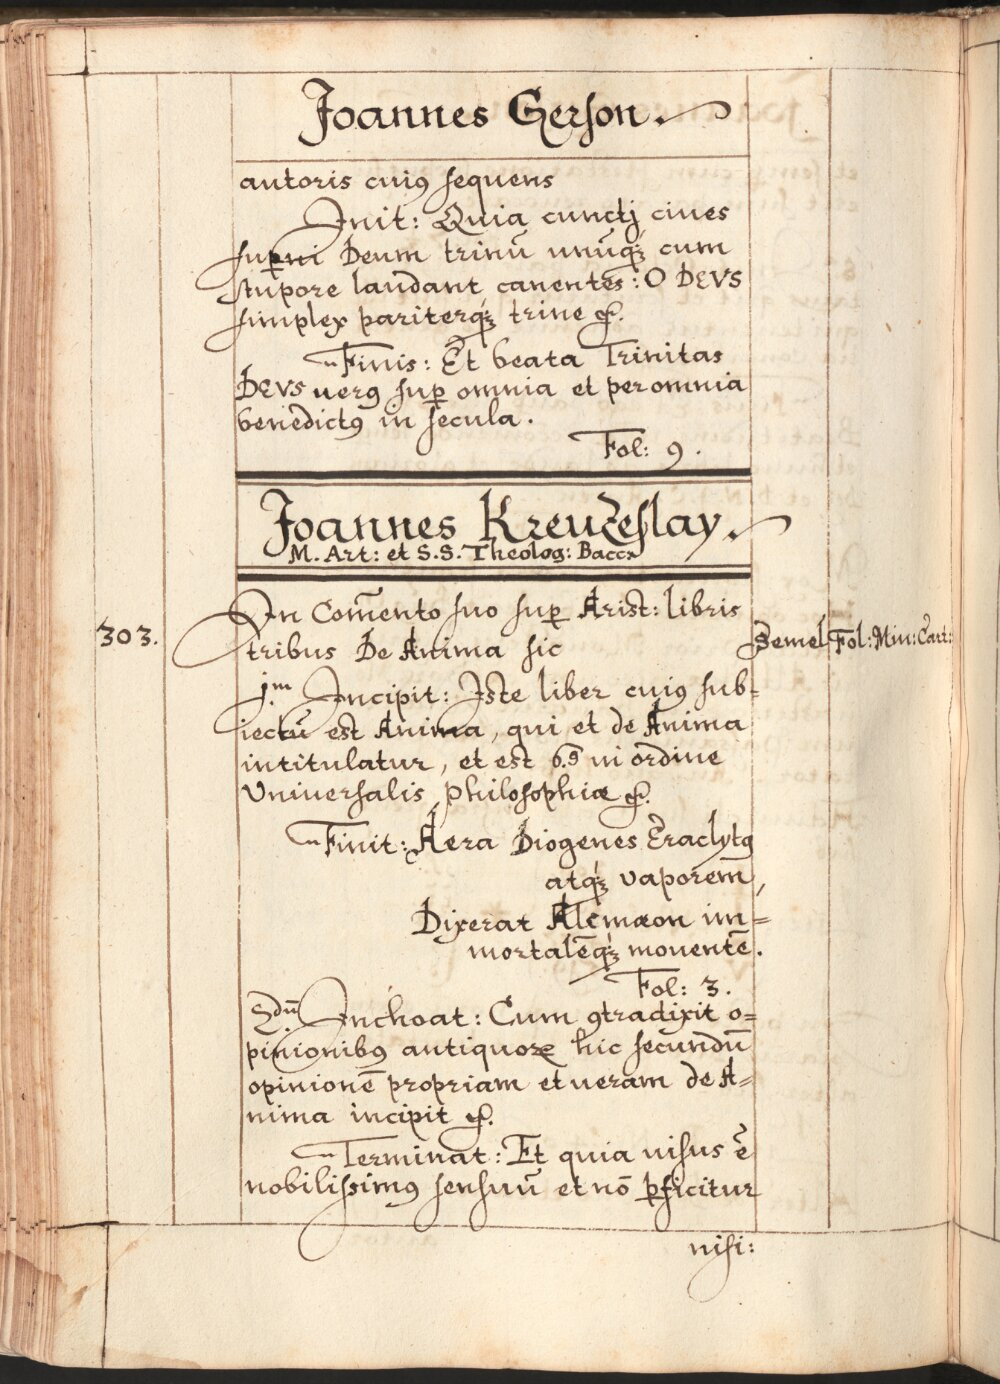 Joannes Gerson.
autoris cuiꝰ sequens
Init: Quia cunctj ciues
suꝑni Deum trinū unūqꝫ cum
stupore laudant canentes: O DEVS
simplex pariterqꝫ trine &c.
Finis: Et beata Trinitas
DEVS uerꝰ suꝑ omnia et per omnia
benedictꝰ in secula.
Fol: 9.
Joannes Kreuczeslay.
M. Art: et S.S. Theolog: Bacc
303.
In Com̄ento suo suꝑ Arist: libris
tribus De Anima sic
Semel
Fol: Min: Cart:
j.m Incipit: Iste liber cuiꝰ sub-
iectū est Anima, qui et de Anima
intitulatur, et est 6.9 in ordine
Vniuersalis philosophiæ &c.
Finit: Aera Diogenes Eraclytꝰ
atqꝫ vaporem,
Dixerat Alcmæon im=
mortalēqꝫ mouentē.
Fol: 3.
Sdū. Inchoat: Cum ꝯtradixit o=
pinionibꝰ antiquoꝝ hic secundū
opinionē propriam et ueram de A=
nima incipit &c.
Terminat: Et quia uisus ē
nobilissimꝰ sensuū et nō ꝑficitur
nisi: